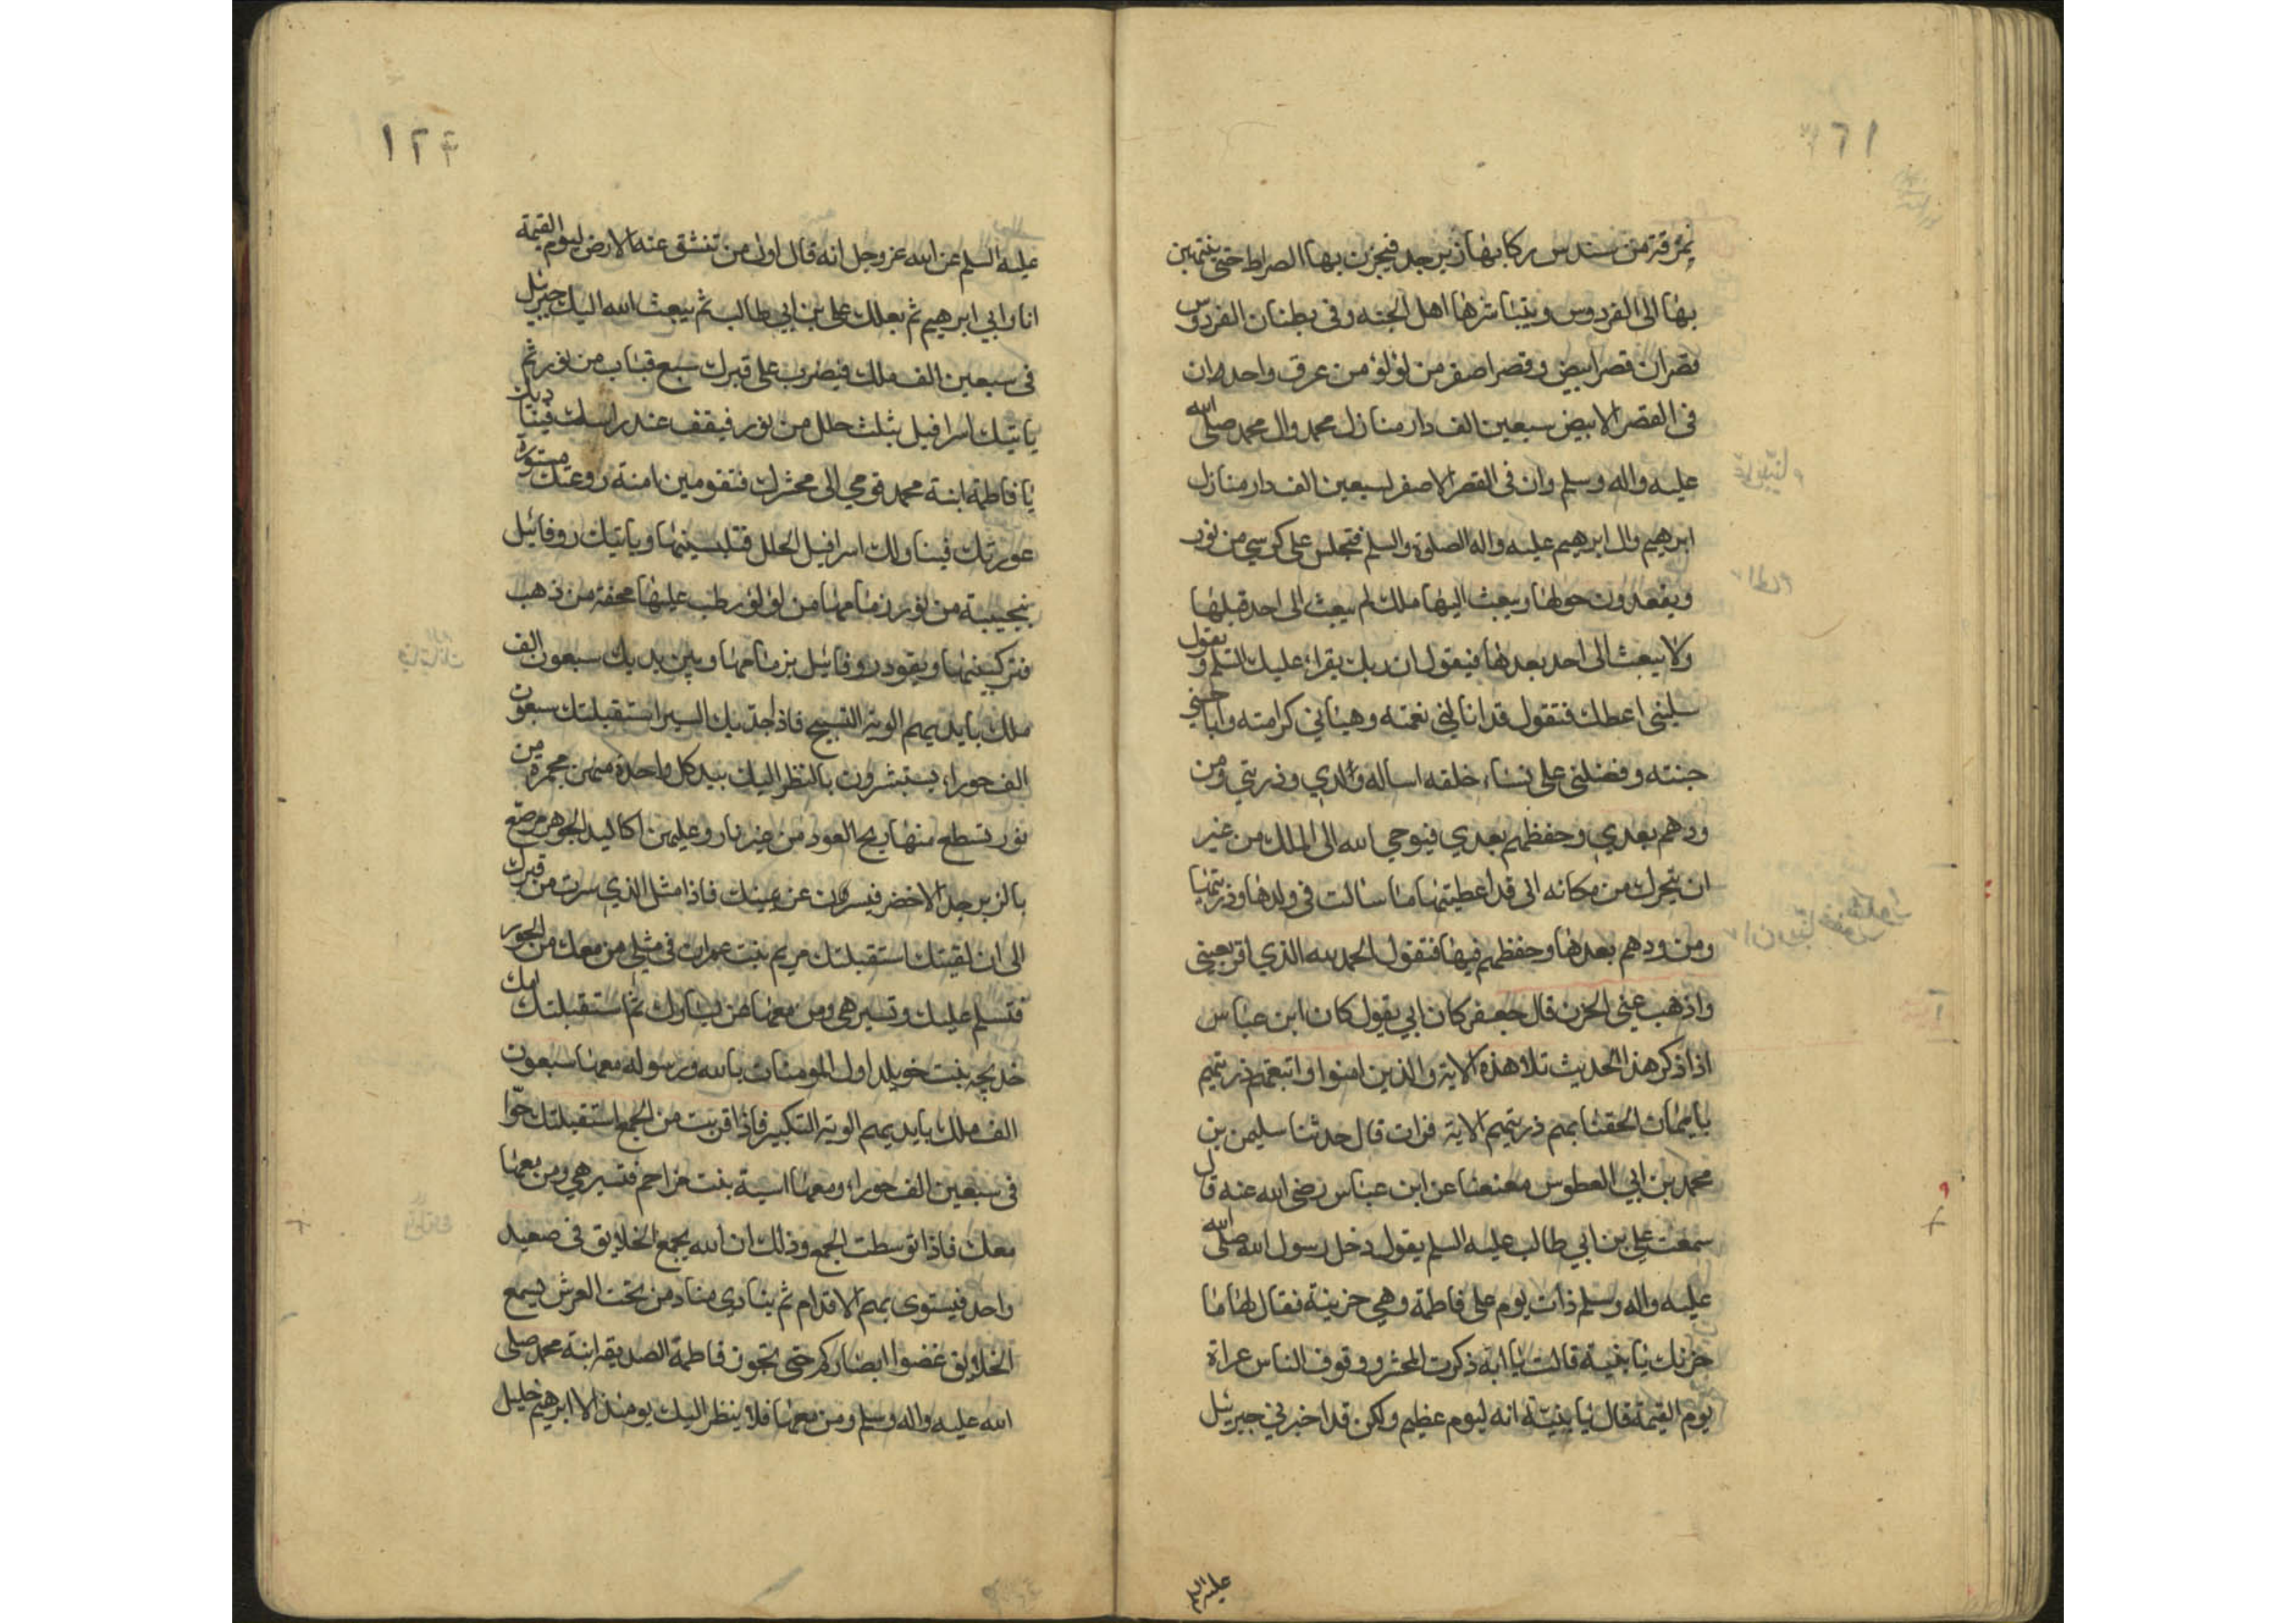 ١٦١
نمرقة من سندس ركابها زبرجد فيجزن بها الصراط حتى ينتهين
بها الى الفردوس ويتباشر بها اهل الجنة وفي بطنان الفردوس
قصران قصر ابيض وقصر اصفر من لؤلؤ من عرق واحد وان
في القصر الابيض سبعين الف دار منازل محمد وال محمد صلى الله
عليه واله وسلم وان في القصر الاصفر لسبعين الف دار منازل
ابرهيم وال ابرهيم عليه واله الصلوة والسلم فتجلس على كرسي من نور
ويقعدون حولها ويبعث اليها ملك لم يبعث الى احد قبلها
ولا يبعث الى احد بعدها فيقول ان ربك يقراء عليك السلم ويقول
سليني اعطك فتقول قد انالني نعمته وهيناني كرامته واباحني
جنته وفضلني على نساء خلقه اساله ولدي وذريتي ومن
ودهم بعدي وحفظهم بعدي فيوحي الله الى الملك من غير
ان يتحرك من مكانه اني قد اعطيتها ما سالت في ولدها وذريتها
ومن ودهم بعدها وحفظهم فيها فتقول الحمد لله الذي اقر بعيني
واذهب عني الحزن قال جعفر كان ابي يقول كان ابن عباس
اذا ذكر هذا الحديث تلا هذه الاية والذين امنوا واتبعتهم ذريتهم
بايمان الحقنا بهم ذريتهم الاية فرات قال حدثنا سليمن بن
محمد بن ابي العطوس معنعنا عن ابن عباس رضي الله عنه قال
سمعت علي بن ابي طالب عليه السلم يقول دخل رسول الله صلى الله
عليه واله وسلم ذات يوم على فاطمة وهي حزينة فقال لها ما
حزنك يا بنية قالت يا ابه ذكرت المحشر ووقوف الناس عراة
يوم القيمة قال يا بنية انه ليوم عظيم ولكن قد اخبرني جبرئيل
عليه السلم عن الله عز وجل انه قال اول من تنشق عنه الارض ليوم القيمة
انا وابي ابرهيم ثم بعلك علي بن ابي طالب ثم يبعث الله اليك جبرئيل
في سبعين الف ملك فيضرب على قبرك سبع قباب من نور ثم
ياتيك اسرافيل بثلث حلل من نور فيقف عند راسك فيناديك
يا فاطمة ابنة محمد قومي الى محشرك فتقومين امنة روعتك مستورة
عورتك فيناولك اسرافيل الحلل فتلبسينها وياتيك روفائيل
بنجيبة من نور زمامها من لؤلؤ رطب عليها محفة من ذهب
فتركبينها ويقود روفائيل بزمامها وبين يديك سبعون الف
ملك بايديهم الوية التسبيح فاذا جد بك السير استقبلتك سبعون
الف حوراء يستبشرون بالنظر اليك بيد كل واحدة منهن مجمرة من
نور تسطع منها ريح العود من غير نار وعليهن اكاليل الجوهر مرصع
بالزبرجد الاخضر فيسرن عن يمينك فاذا مثل الذي سرت من قبرك
الى ان لقيتك استقبلتك مريم بنت عمران في مثل من معك من الحور
فتسلم عليك وتسير هي ومن معها عن يسارك ثم استقبلتك امك
خديجة بنت خويلد اول المومنات بالله ورسوله معها سبعون
الف ملك بايديهم الوية التكبير فاذا قربت من الجمع استقبلتك حوا
في سبعين الف حوراء ومعها اسية بنت مزاحم فتسير هي ومن معها
معك فاذا توسطت الجمع وذلك ان الله يجمع الخلايق في صعيد
واحد فيستوى بهم الاقدام ثم ينادي مناد من تحت العرش يسمع
الخلايق غضوا ابصاركم حتى تجوز فاطمة الصديقة ابنة محمد صلى
الله عليه واله وسلم ومن معها فلا ينظر اليك يومئذ الا ابرهيم خليل